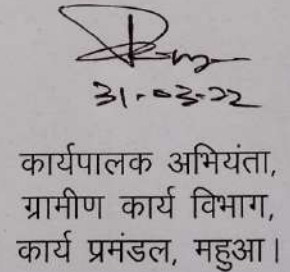 31-03-22
कार्यपालक अभियंता,
ग्रामीण कार्य विभाग,
कार्य प्रमंडल, महुआ।